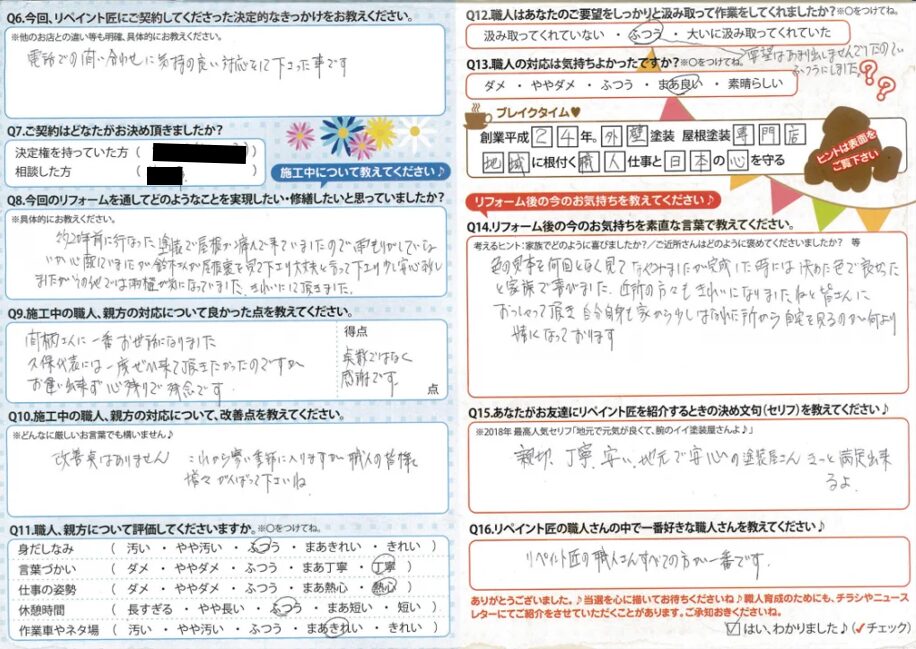 Q6.今回、リペイント匠にご契約してくださった決定的なきっかけをお教えください。
※他のお店との違い等も明確、具体的にお教えください。
電話での問い合わせに気持の良い対応をして下さった事です
Q7.ご契約はどなたがお決め頂きましたか?
決定権を持っていた方(
)
相談した方 (
)
施工中について教えてください♪
Q8.今回のリフォームを通してどのようなことを実現したい・修繕したいと思っていましたか?
※具体的にお教えください。
約20年前に行なった塗装で屋根が痛んで来ていましたので雨もりがしていな
いか心配していましたが鈴木さんが屋根裏を見て下さり大丈夫と言って下さり少し安心致し
ましたがその他では雨樋が気になっていました。きれいにして頂きました。
Q9.施工中の職人、親方の対応について良かった点を教えてください。
高柄さんに一番お世話になりました
久保代表には一度ぜひ来て頂きたかったのですが
お逢い出来ず心残りで残念です
得点
点数ではなく
感謝です。
点
Q10.施工中の職人、親方の対応について、改善点を教えてください。
※どんなに厳しいお言葉でも構いません♪
改善点はありません これから寒い季節に入りますが職人の皆様
増々がんばって下さいね
Q11.職人、親方について評価してくださいますか。※○をつけてね。
身だしなみ ( 汚い ・ やや汚い ・ ふつう ・ まあきれい ・ きれい )
言葉づかい ( ダメ ・ ややダメ ・ ふつう ・ まあ丁寧 ・ 丁寧 )
仕事の姿勢 ( ダメ ・ ややダメ ・ ふつう ・ まあ熱心 ・ 熱心 )
休憩時間 ( 長すぎる ・ やや長い ・ ふつう ・ まあ短い ・ 短い )
作業車やネタ場 ( 汚い ・ やや汚い ・ ふつう ・ まあきれい ・ きれい )
Q12.職人はあなたのご要望をしっかりと汲み取って作業をしてくれましたか?※○をつけてね。
汲み取ってくれていない ・ ふつう ・ 大いに汲み取ってくれていた
要望はあまり出しませんでしたので
ふつうにしました
Q13.職人の対応は気持ちよかったですか?※○をつけてね。
ダメ ・ ややダメ ・ ふつう ・ まあ良い ・ 素晴らしい
??
ブレイクタイム♥
創業平成24年。外壁塗装 屋根塗装専門店
地域に根付く職人仕事と日本の心を守る
ヒントは表面を
ご覧下さい
リフォーム後の今のお気持ちを教えください♪
Q14.リフォーム後の今のお気持ちを素直な言葉で教えてください。
考えるヒント:家族でどのように喜びましたか?/ご近所さんはどのように褒めてくださいましたか? 等
色の見本を何回となく見てなやみましたが完成した時には決めた色で良かった
と家族で喜びました。近所の方々もきれいになりましたねと皆さんに
おっしゃって頂き自分自身も家から少しはなれた所から自宅を見るのが何より
嬉しくなっております
Q15.あなたがお友達にリペイント匠を紹介するときの決め文句(セリフ)を教えてください♪
※2018年 最高人気セリフ「地元で元気が良くて、腕のイイ塗装屋さんよ♪」
親切、丁寧、安い、地元で安心の塗装屋さん きっと満足出来
るよ。
Q16.リペイント匠の職人さんの中で一番好きな職人さんを教えてください♪
リペイント匠の職人さんすべての方が一番です。
ありがとうございました。♪当選を心に描いてお待ちくださいね♪職人育成のためにも、チラシやニュース
レターにてご紹介をさせていただくことがあります。ご承知おきくださいね。
☑はい、わかりました♪(✓チェック)